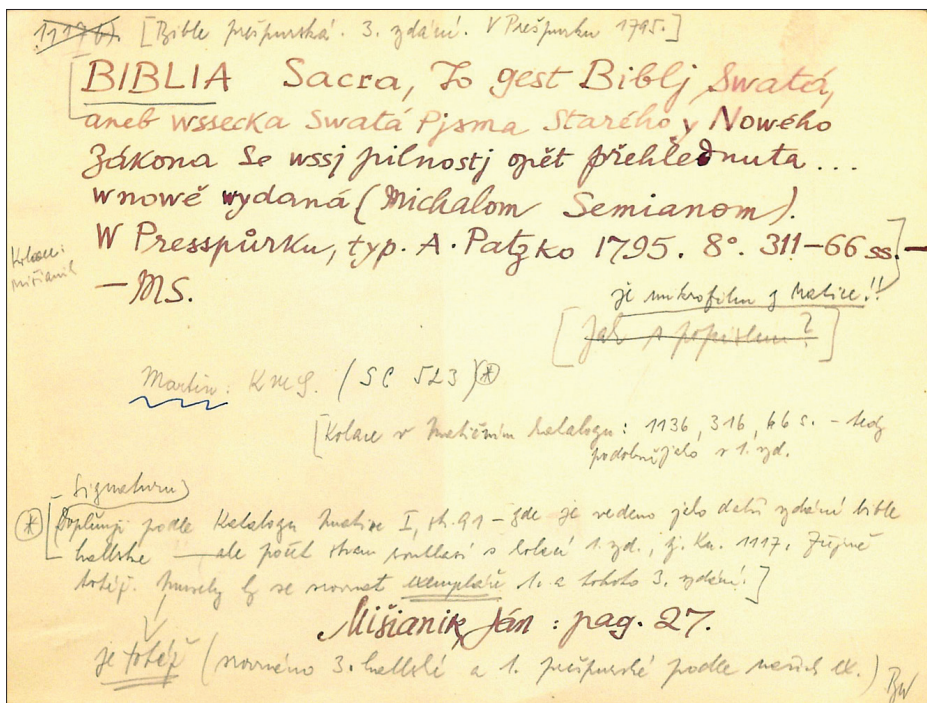 1117b). [Bible prešpurská. 3. vydání. V Prešpurku 1795.]
BIBLIA Sacra, To gest Biblj Swatá,
aneb wssecka Swatá Pjsma Starého y Nowého
Zákona Se wssj pilnostj opět přehlédnuta ...
wnowě wydaná (Michalom Semianom).
W Presspůrku, typ. A. Patzko 1795. 8°. 311-66 ss. —
— MS.
Kolace:
mišianik
je mikrofilm z Matice!!
[Jak s popisem?]
Martin: KMS. (SC 523) *
[Kolace v Matičním katalogu: 1136, 316, 66 s. - tedy
podobně jako v 1. vyd.
Signaturu
* [Doplňuji podle Katalogu Matice I, str. 91 - gde je vedeno jako další vydání bible
hallské — ale počet stran souhlasí s kolací 1. vyd., zj. Kn. 1117. Zřejmě
totéž. Musely by se srovnat exempláře 1. a tohoto 3. vydání.]
Mišianik, Ján: pag. 27.
je totéž (srovnáno 3. hallské a 1. prešpurské podle našich ex.)
BW